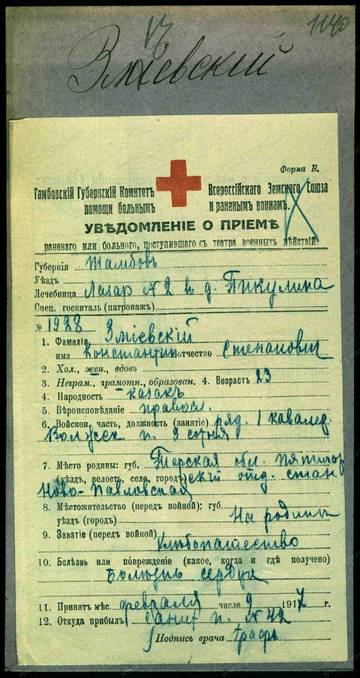 1140
Зміевскій
Форма Б.
Тамбовскій Губернскій Комитетъ Всероссійскаго Земскаго Союза
помощи больнымъ и раненымъ воинамъ.
УВѢДОМЛЕНІЕ О ПРІЕМѢ
раненаго или больного, поступившаго съ театра военныхъ дѣйствій
Губернія Тамбовъ
Уѣздъ
Лечебница Лазар № 2 в д. Пикулина
Спец. госпиталь (патронажъ)
№ 1988
1. Фамилія Зміевскій
имя Константин отчество Степанович
2. Хол., жен., вдовъ
3. Неграм., грамотн., образован. 4. Возрастъ 23
4. Народность казакъ
5. Вѣроисповѣданіе правосл.
6. Войсков. часть, должность (занятіе) ряд. 1 кавалер.
Волжск п. 2 сотня
7. Мѣсто родины: губ. Терская обл. Пятигор
уѣздъ, волость, село, городъ скій отд. стан
Ново-Павловская
8. Мѣстожительство (передъ войной): губ.
уѣздъ (городъ) На родинѣ
9. Занятіе (передъ войной)
Хлебопашество
10. Болѣзнь или поврежденіе (какое, когда и гдѣ получено)
Болезнь сердца
11. Принятъ мѣс. февраля числа 9 1917 г.
12. Откуда прибылъ Санит п. № 42
Подпись врача